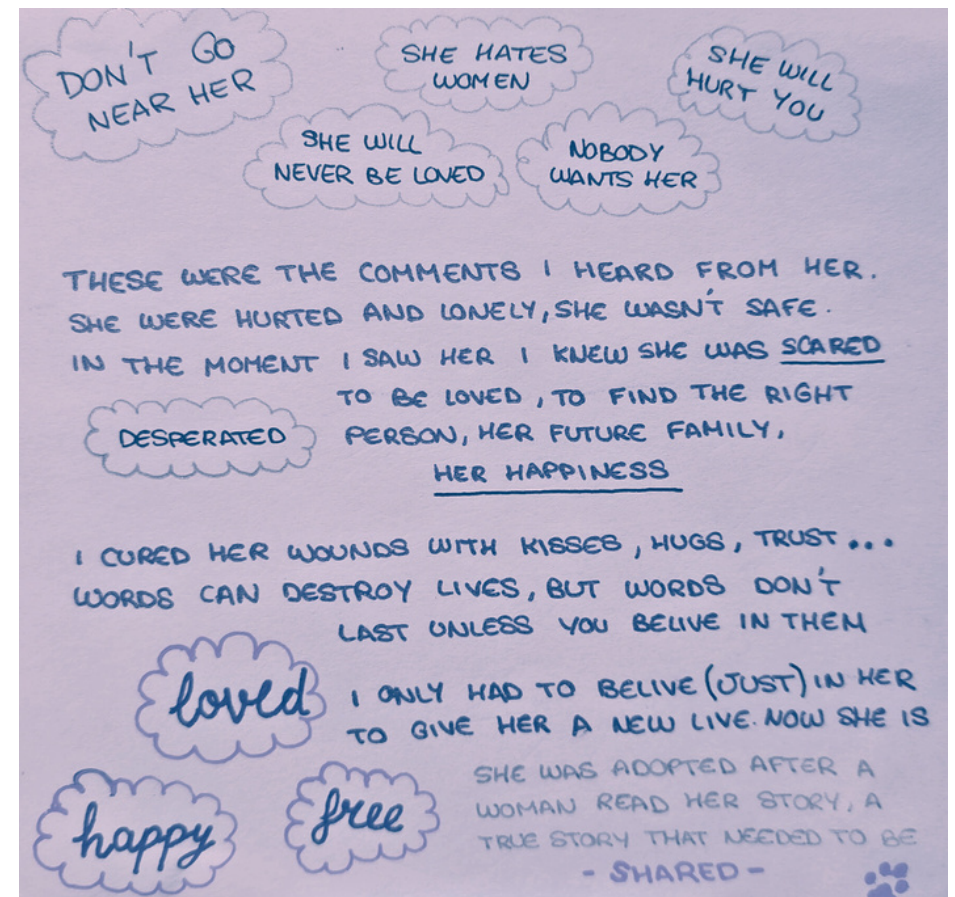 DON'T GO
NEAR HER
SHE HATES
WOMEN
SHE WILL
HURT YOU
SHE WILL
NEVER BE LOVED
NOBODY
WANTS HER
THESE WERE THE COMMENTS I HEARD FROM HER.
SHE WERE HURTED AND LONELY, SHE WASN'T SAFE.
IN THE MOMENT I SAW HER I KNEW SHE WAS SCARED
TO BE LOVED, TO FIND THE RIGHT
DESPERATED
PERSON, HER FUTURE FAMILY,
HER HAPPINESS
I CURED HER WOUNDS WITH KISSES, HUGS, TRUST...
WORDS CAN DESTROY LIVES, BUT WORDS DON'T
LAST UNLESS YOU BELIVE IN THEM
loved
I ONLY HAD TO BELIVE (JUST) IN HER
TO GIVE HER A NEW LIVE. NOW SHE IS
happy
free
SHE WAS ADOPTED AFTER A
WOMAN READ HER STORY, A
TRUE STORY THAT NEEDED TO BE
- SHARED -